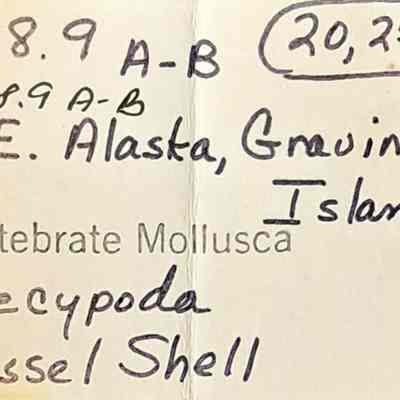 8.9 A-B 20,2
8.9 A-B
E. Alaska, Gravin
Islan
tebrate Mollusca
ecypoda
ssel Shell